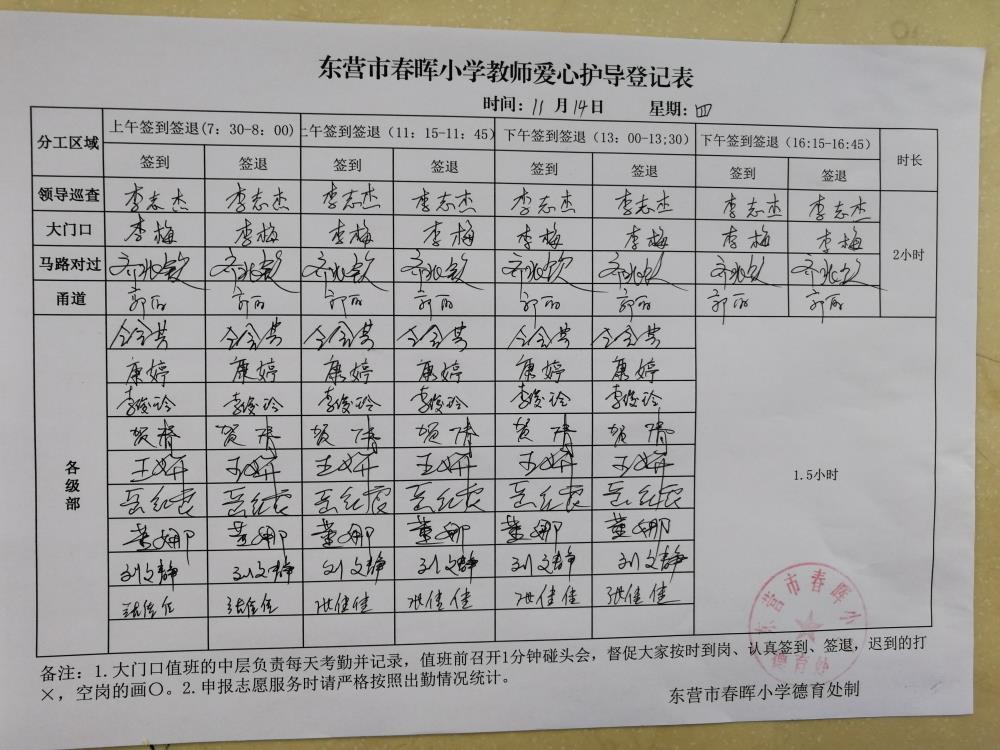 东营市春晖小学教师爱心护导登记表
时间：11月14日 星期：四
分工区域 上午签到签退(7：30-8：00) 上午签到签退（11：15-11：45） 下午签到签退（13：00-13;30) 下午签到签退（16:15-16:45） 时长
签到 签退 签到 签退 签到 签退 签到 签退
领导巡查 李志杰 李志杰 李志杰 李志杰 李志杰 李志杰 李志杰 李志杰
大门口 李梅 李梅 李梅 李梅 李梅 李梅 李梅 李梅
马路对过 2小时
甬道 郭丽 郭丽 郭丽 郭丽 郭丽 郭丽 郭丽 郭丽
康婷 康婷 康婷 康婷 康婷 康婷
李俊玲 李俊玲 李俊玲 李俊玲 李俊玲 李俊玲
贺倩 贺倩 贺倩 贺倩 贺倩 贺倩
王妍 王妍 王妍 王妍 王妍 王妍
各级部 1.5小时
岳红霞 岳红霞 岳红霞 岳红霞 岳红霞 岳红霞
董娜 董娜 董娜 董娜 董娜 董娜
刘文静 刘文静 刘文静 刘文静 刘文静 刘文静
张佳佳 张佳佳 张佳佳 张佳佳 张佳佳 张佳佳
东营市春晖小
德育处
备注：1.大门口值班的中层负责每天考勤并记录，值班前召开1分钟碰头会，督促大家按时到岗、认真签到、签退，迟到的打
×，空岗的画〇。2.申报志愿服务时请严格按照出勤情况统计。
东营市春晖小学德育处制